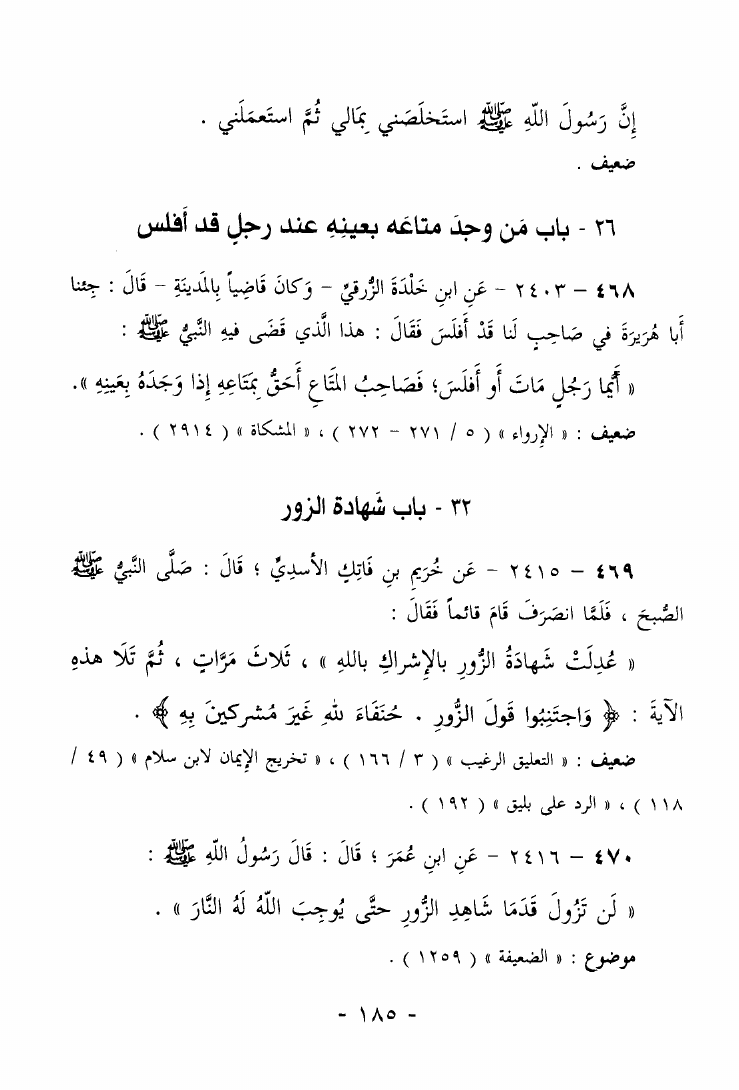 إِنَّ رَسُولَ اللّهِ ﷺ استَخلَصَني بِمَالي ثُمَّ استَعمَلَني .
ضعيف .
٢٦ - باب مَن وجدَ متاعَه بعينِهِ عند رجلٍ قد أَفلس
٤٦٨ – ٢٤٠٣ – عَنِ ابنِ خَلْدَةَ الزُّرقيِّ – وَكانَ قَاضِياً بِالمَدينَةِ – قَالَ : جِئنا
أَبا هُرَيرَةَ في صَاحِبٍ لَنا قَدْ أَفلَسَ فَقَالَ : هذا الَّذي قَضَى فيهِ النَّبيُّ ﷺ :
« أَيُّما رَجُلٍ مَاتَ أَو أَفلَسَ؛ فَصَاحِبُ المَتَاعِ أَحَقُّ بِمَتَاعِهِ إِذا وَجَدَهُ بِعَينِهِ ».
ضعيف : « الإرواء » ( ٥ / ٢٧١ – ٢٧٢ ) ، « المشكاة » ( ٢٩١٤ ) .
٣٢ - باب شَهادة الزور
٤٦٩ – ٢٤١٥ – عَن خُرَيمِ بنِ فَاتِكٍ الأسديِّ ؛ قَالَ : صَلَّى النَّبيُّ ﷺ
الصُّبحَ ، فَلَمَّا انصَرَفَ قَامَ قائماً فَقَالَ :
« عُدِلَتْ شَهادَةُ الزُّورِ بالإشراكِ باللهِ » ، ثَلاثَ مَرَّاتٍ ، ثُمَّ تَلَا هذهِ
الآيةَ : ﴿ وَاجتَنِبُوا قَولَ الزُّورِ . حُنَفَاءَ للهِ غَيرَ مُشركينَ بِهِ ﴾ .
ضعيف : « التعليق الرغيب » ( ٣ / ١٦٦ ) ، « تخريج الإيمان لابن سلام » ( ٤٩ /
١١٨ ) ، « الرد على بليق » ( ١٩٢ ) .
٤٧٠ – ٢٤١٦ – عَنِ ابنِ عُمَرَ ؛ قَالَ : قَالَ رَسُولُ اللّهِ ﷺ :
« لَن تَزُولَ قَدَمَا شَاهِدِ الزُّورِ حتَّى يُوجِبَ اللّهُ لَهُ النَّارَ » .
موضوع : « الضعيفة » ( ١٢٥٩ ) .
- ١٨٥ -